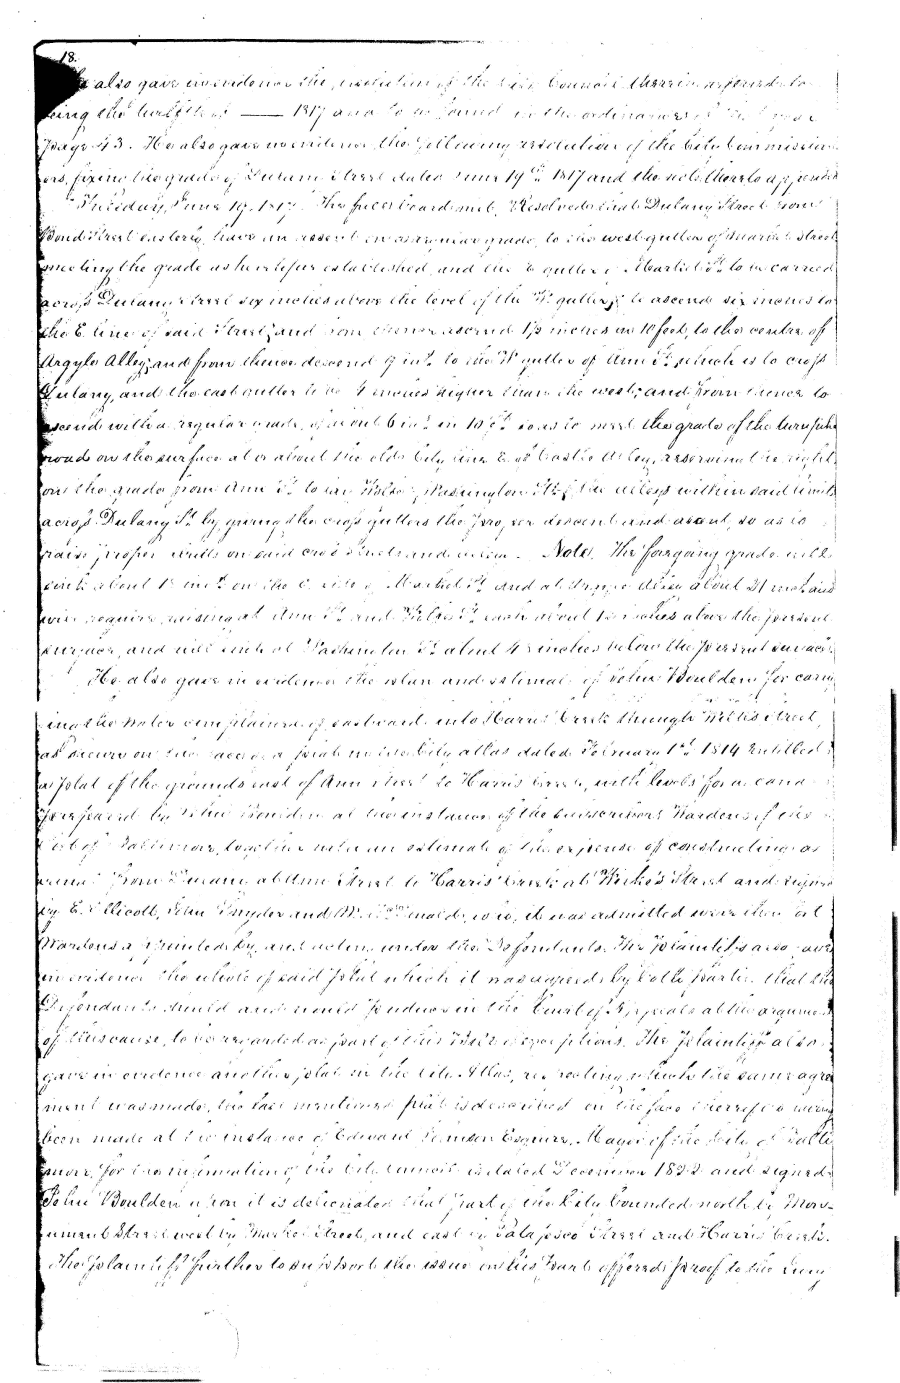 18.
He also gave in evidence the resolution of the City Council therein referred to
being the twelfth of —— 1817 and to be found in the ordinances of that year
page 43. He also gave in evidence the following resolution of the City Commission-
ers, fixing the grade of Dulany Street dated June 19th 1817 and the note thereto appended
"Thursday, June 19. 1817. The full board met, Resolved that Dulany Street from
Bond Street easterly, have an ascent in a regular grade, to the west gutter of Market Street
meeting the grade as heretofore established, and the E gutter of Market St. to be carried
across Dulany street six inches above the level of the W. gutter, to ascend six inches to
the E. line of said Street, and from thence ascend 1½ inches in 10 feet, to the centre of
Argyle Alley; and from thence descend 9 ins. to the W gutter of Ann St. which is to cross
Dulany, and the east gutter to be 4 inches higher than the west; and from thence to
ascend with a regular grade of about 6 ins. in 10 ft. so as to meet the grade of the turnpike
road on the surface at or about the old City line E. of Castle Alley, reserving the right
on the grade from Ann St. to Wolfe, Washington Sts. & the alleys within said limits
across Dulany St. by giving the cross gutters the proper descent and ascent, so as to
raise proper on said cross streets and . Note. The forgoing grade will
sink about 18 ins. on the E. side of Market St. and at Argyle Alley about 21 ins. and
will require raising at Ann St. and Wolfe St. each about inches above the present
surface, and will sink at Washington St. about inches below the present surface.
He also gave in evidence the plan and estimate of John Boulden for carry-
ing the water complained of eastward into Harris' Creek through Wilks Street,
as shewn on the face of a plat in the City atlas dated February 1st. 1814 entitled
a plat of the grounds east of Ann street to Harris Creek, with levels for a canal
prepared by John Boulden at the instance of the subscribers Wardens of the
Port of Baltimore, together with an estimate of the expense of constructing a
canal from Dulany at Ann Street to Harris' Creek at Wilks's Street and signed
by E. Ellicott, John Snyder and W. McDonald, who, it was admitted were then Port
Wardens appointed by, and acting under the Defendants. The plaintiffs also gave
in evidence the whole of said plat which it was agreed by both parties that the
Defendants should and would produce in the Court of Appeals at the argument
of this cause, to be regarded as part of this Bill of exceptions. The plaintiffs also
gave in evidence another plat in the City Atlas, respecting which the same agree-
ment was made, the last mentioned plat is described on the face thereof as having
been made at the instance of Edward Johnson Esquire, Mayor of the City of Balti-
more, for the information of the City Council is dated December 1822 and signed
John Boulden upon it is delineated that part of the City bounded north by Mon-
ument Street west by Market Street, and east by Patapsco Street and Harris' Creek.
The plaintiffs further to support the issue on their part offered proof to the Jury